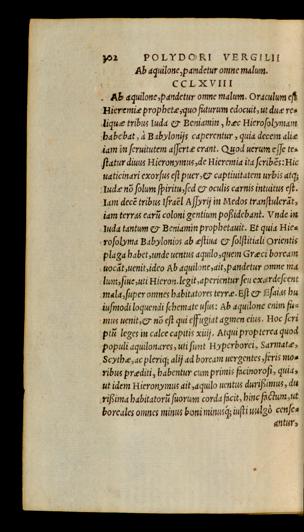 302 POLYDORI VERGILII
Ab aquilone, pandetur omne malum.
CCLXVIII
Ab aquilone, pandetur omne malum. Oraculum est
Hieremiæ prophetæ, quo futurum edocuit, ut duæ re-
liquæ tribus Iuda & Beniamin, hæc Hierosolymam
habebat, à Babylonijs caperentur, quia decem aliæ
iam in seruitutem assertæ erant. Quod uerum esse te-
statur diuus Hieronymus, de Hieremia ita scribẽs: Hic
uaticinari exorsus est puer, & captiuitatem urbis atq;
Iudæ nõ solum spiritu, sed & oculis carnis intuitus est.
Iam decẽ tribus Israël Assyrij in Medos transtulerãt,
iam terras earũ coloni gentium possidebant. Vnde in
Iuda tantum & Beniamin prophetauit. Et quia Hie-
rosolyma Babylonios ab æstiua & solstitiali Orientis
plaga habet, unde uentus aquilo, quem Græci boream
uocãt, uenit, ideo Ab aquilone, ait, pandetur omne ma
lum, siue, uti Hieron. legit, aperientur seu exardescent
mala, super omnes habitatores terræ. Est & Esaias hu
iusmodi loquendi schemate usus: Ab aquilone enim fu-
mus uenit, & nõ est qui effugiat agmen eius. Hoc scri
ptũ leges in calce capitis xiiij. Atqui propterea quod
populi aquilonares, uti sunt Hyperborei, Sarmatæ,
Scythæ, ac pleriq; alij ad boream uergentes, feris mo-
ribus præditi, habentur cum primis facinorosi, quia,
ut idem Hieronymus ait, aquilo uentus durissimus, du
rissima habitatorũ suorum corda facit, hinc factum, ut
boreales omnes minus boni minusq; iusti uulgò cense-
antur,